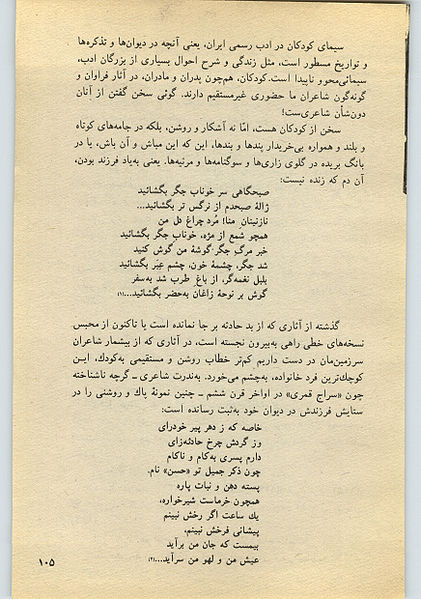 سیمای کودکان در ادب رسمی ایران، یعنی آنچه در دیوان‌ها و تذکره‌ها
و تواریخ مسطور است، مثل زندگی و شرح احوال بسیاری از بزرگان ادب،
سیمائی‌محوو ناپیدا است.کودکان، هم‌چون پدران و مادران، در آثار فراوان و
گونه‌گون شاعران ما حضوری غیرمستقیم دارند. گوئی سخن گفتن از آنان
دون‌شأن شاعری‌ست!
سخن از کودکان هست، امّا نه آشکار و روشن، بلکه در جامه‌های کوتاه
و بلند و همواره بی‌خریدار پندها و بندها، این که این مباش و آن باش، یا در
بانگ بریده در گلوی زاری‌ها و سوگنامه‌ها و مرثیه‌ها. یعنی به‌یاد فرزند بودن،
آن دم که زنده نیست:
صبحگاهی سر خوناب جگر بگشائید
ژالهٔ صبحدم از نرگس تر بگشائید...
نازنینان منا! مُرد چراغ دل من
همچو شمع از مژه، خوناب جگر بگشائید
خبر مرگِ جگرگوشهٔ من گوش کنید
شد جگر، چشمهٔ خون، چشم عِبَر بگشائید
بلبل نغمه‌گر، از باغِ طرب شد به‌سفر
گوش بر نوحهٔ زاغان به‌حضر بگشائید...(۱)
گذشته از آثاری که از بد حادثه بر جا نمانده است یا تاکنون از محبس
نسخه‌های خطی راهی به‌بیرون نجسته است، در آثاری که از بیشمار شاعران
سرزمین‌مان در دست داریم کم‌تر خطاب روشن و مستقیمی به‌کودك، این
کوچك‌ترین فرد خانواده، به‌چشم می‌خورد. به‌ندرت شاعری ـ گرچه ناشناخته
چون «سراج قمری» در اواخر قرن ششم ـ چنین نمونهٔ پاك و روشنی را در
ستایش فرزندش در دیوان خود به‌ثبت رسانده است:
خاصه که ز دهر پیر خودرای
وز گردش چرخ حادثه‌زای
دارم پسری به‌کام و ناکام
چون ذکر جمیل تو «حسن» نام.
پسته دهن و نبات پاره
همچون خرماست شیرخواره،
یك ساعت اگر رخش نبینم
پیشانی فرخش نبینم،
بیمست که جان من برآید
عیش من و لهو من سرآید...(۲)
۱۰۵